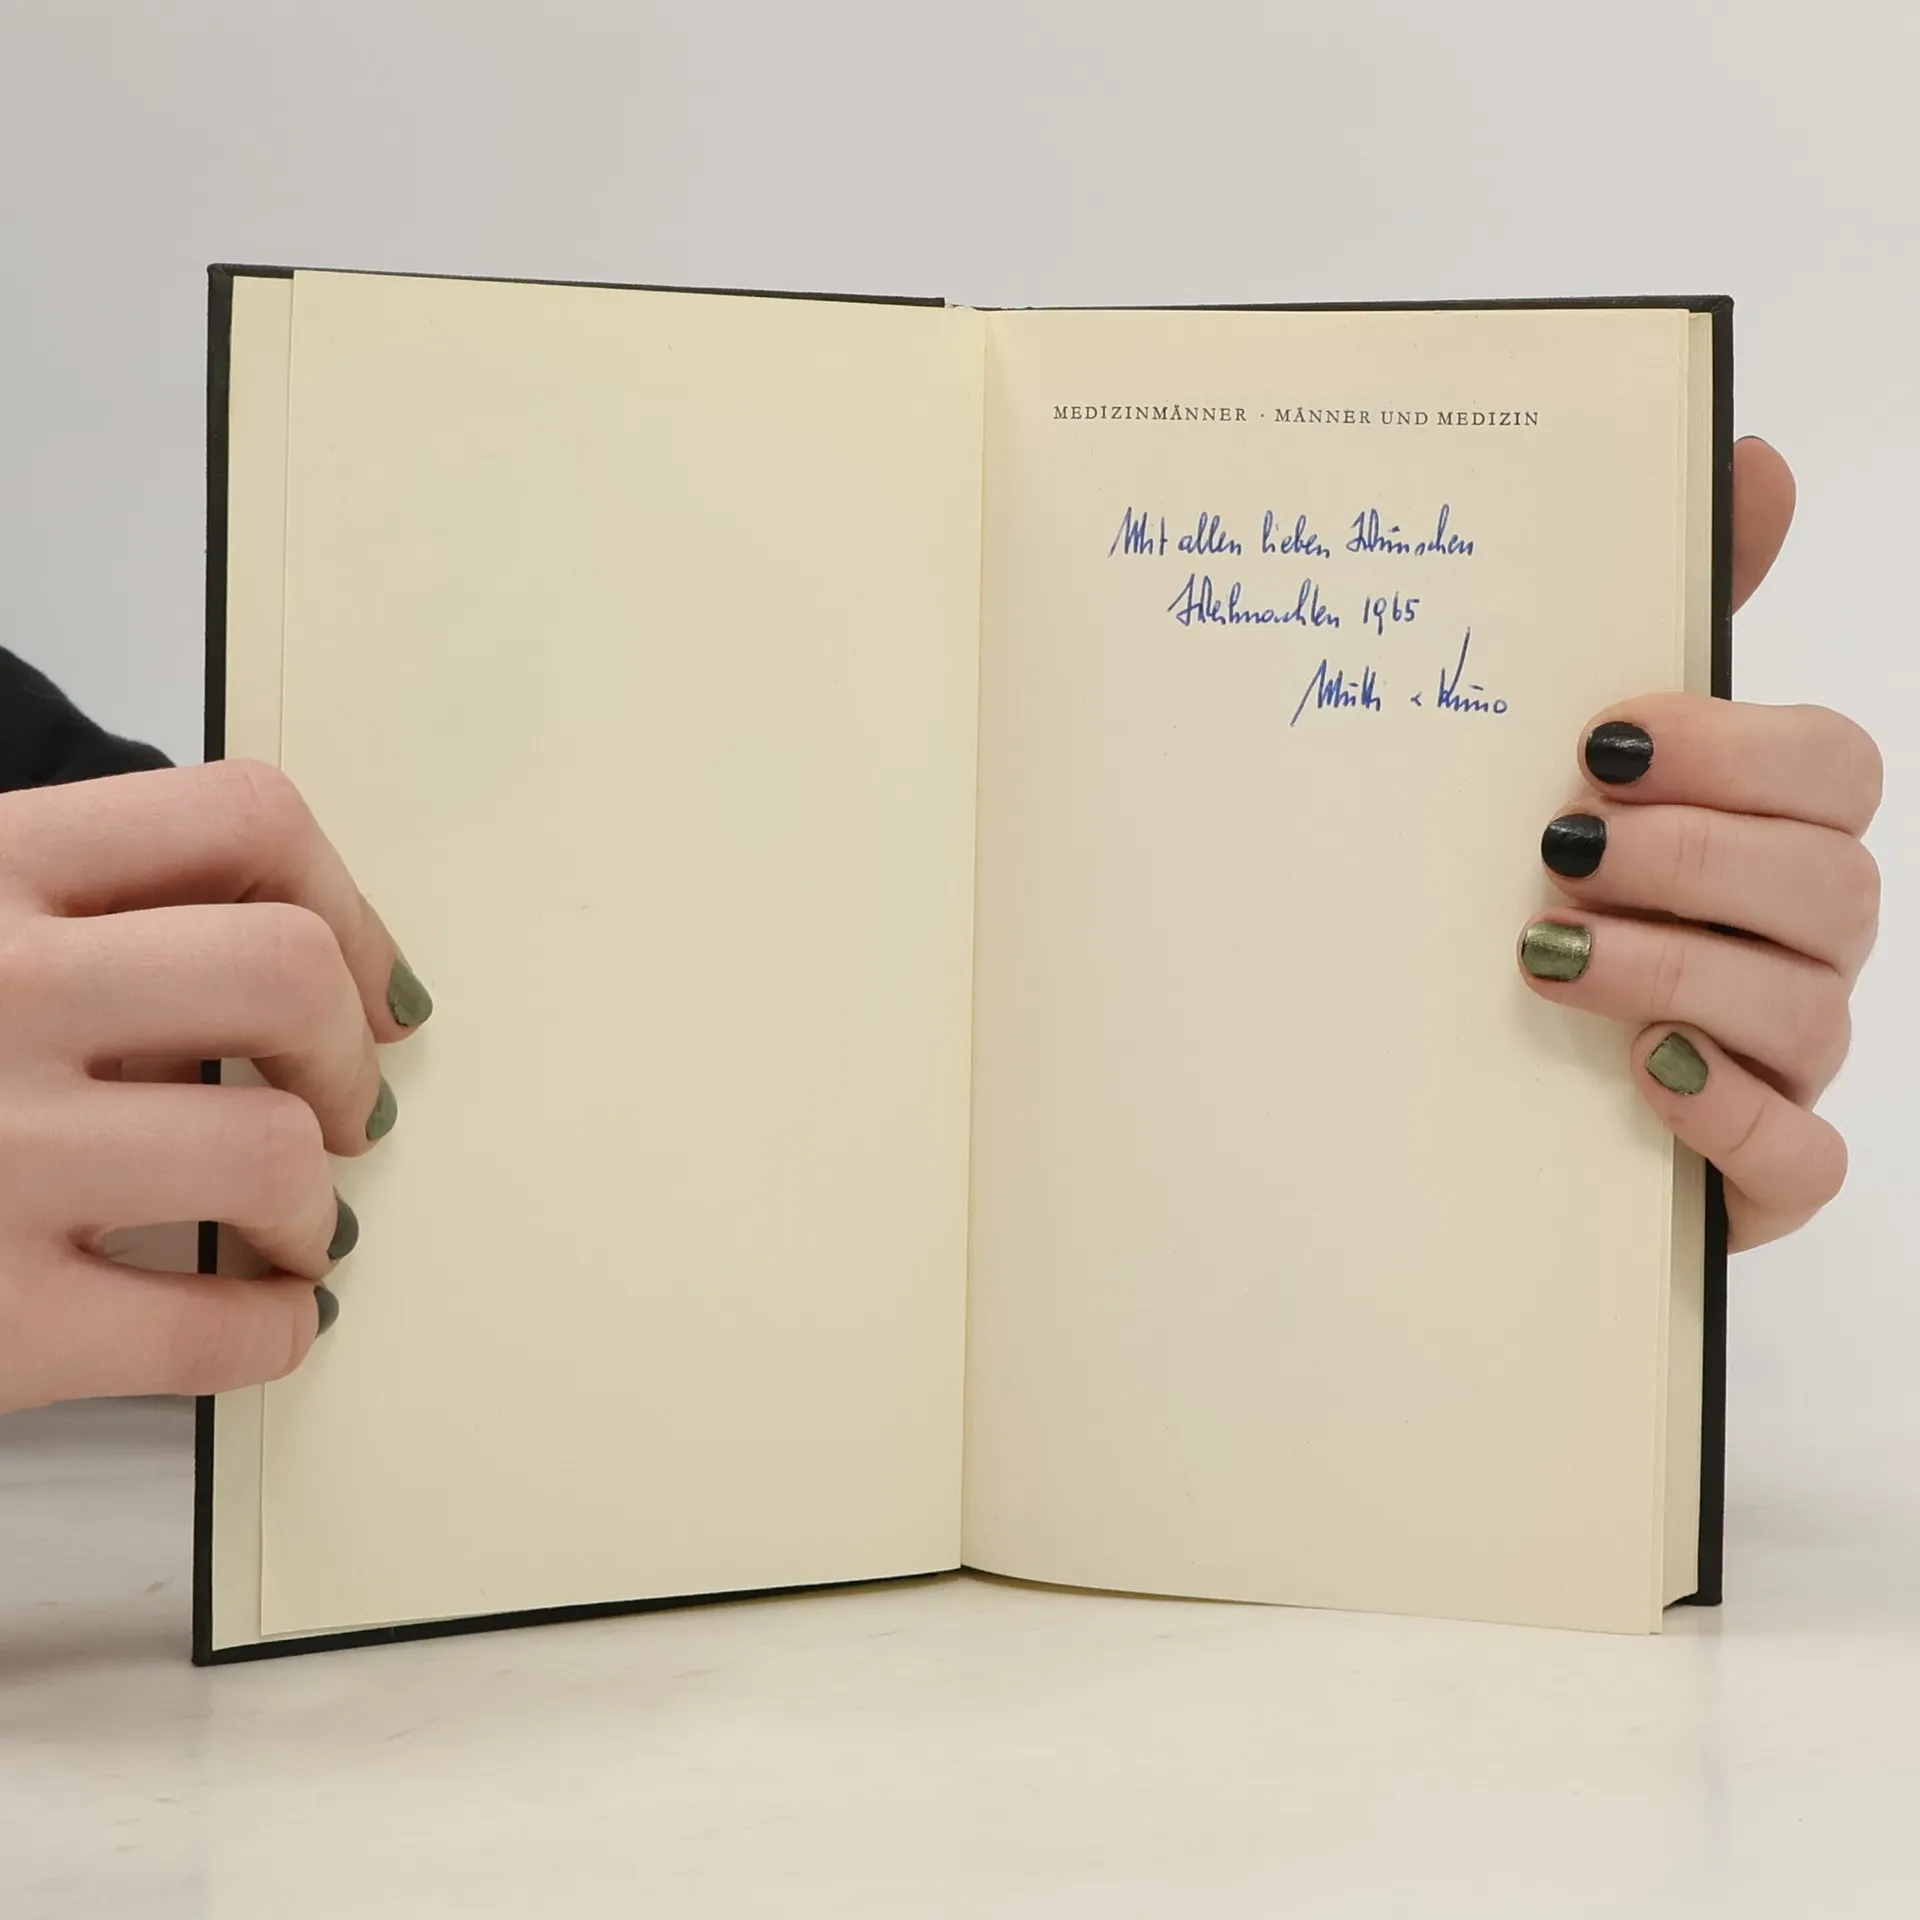 MEDIZINMÄNNER · MÄNNER UND MEDIZIN
Mit allen lieben Wünschen
Weihnachten 1965
Mutti & Kuno